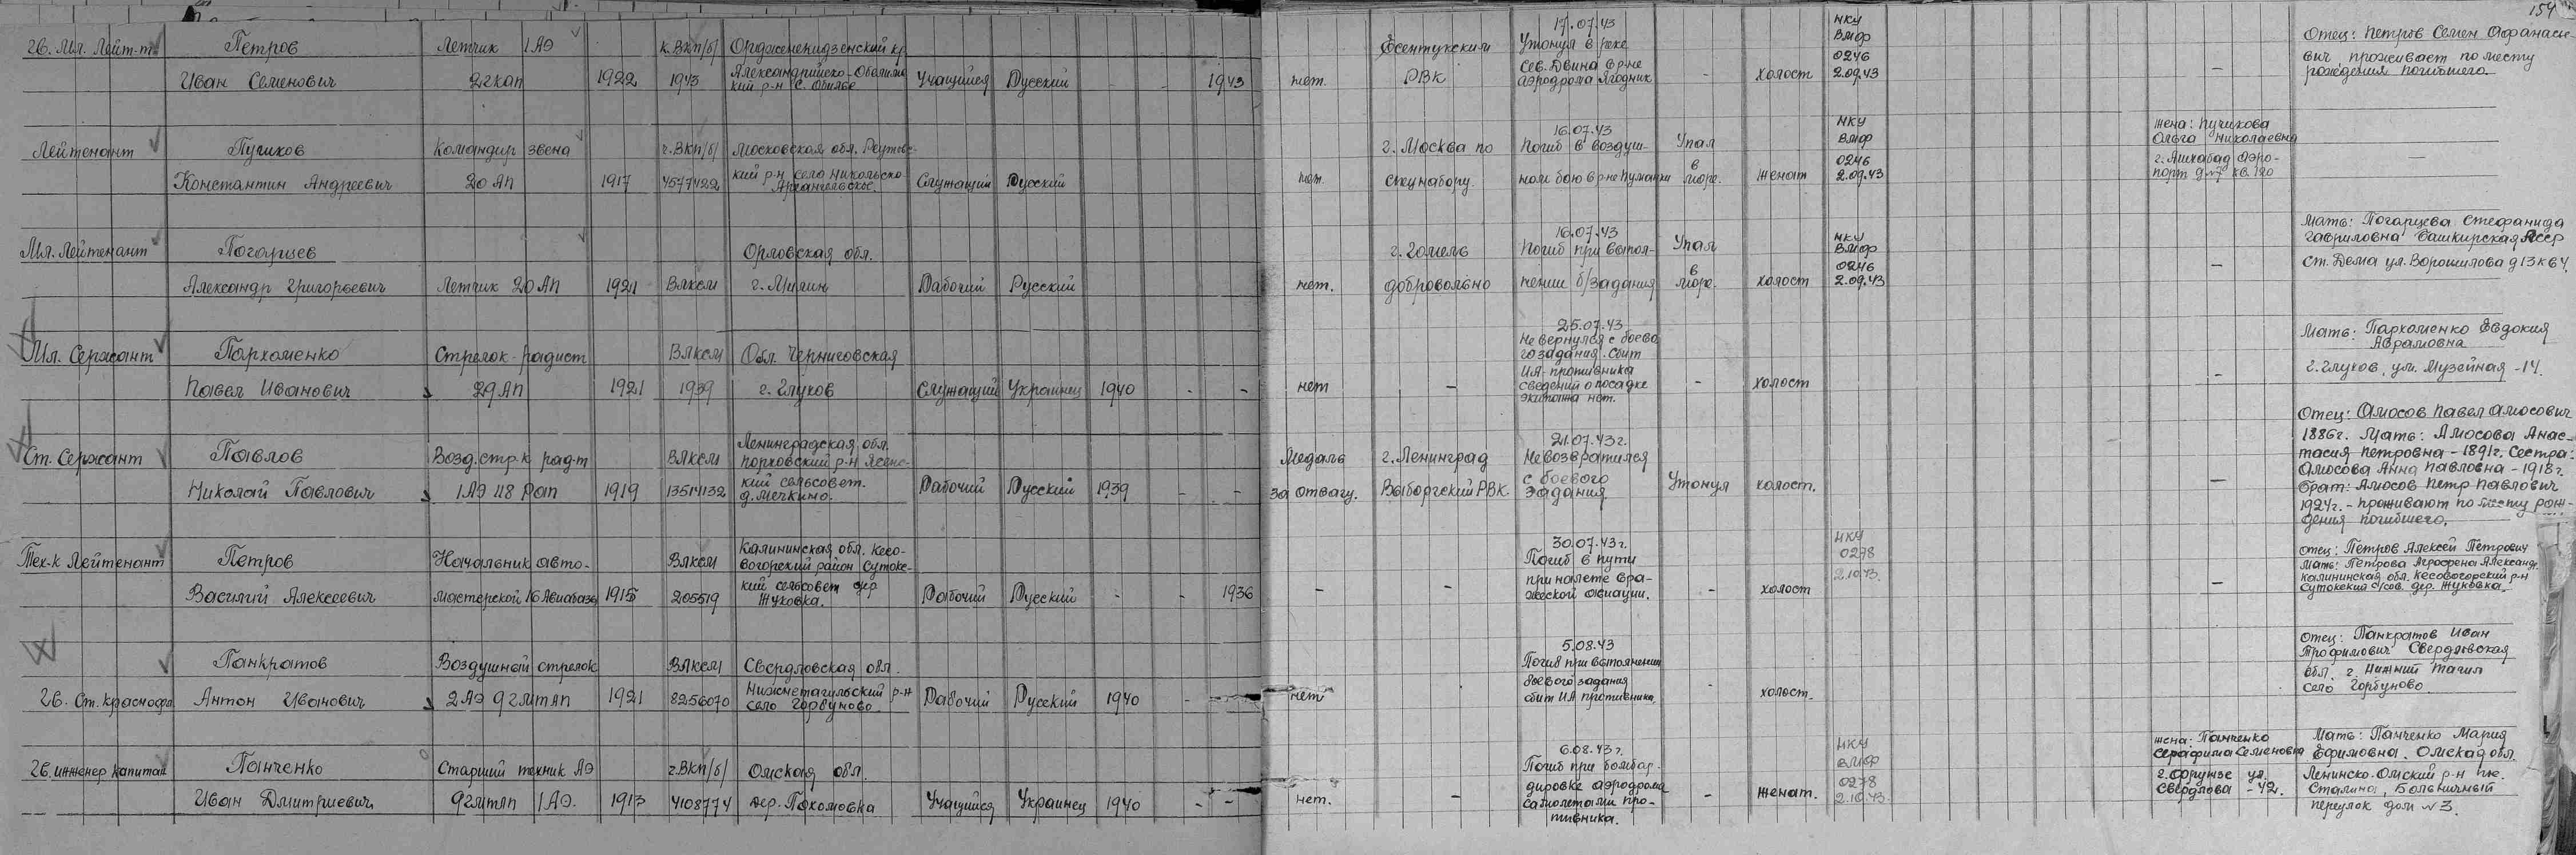 154
Гв. Мл. Лейт-т Петров Летчик 1 АЭ к.ВКП/б/ Орджоникидзенский кр.
Иван Семенович 2 гкап 1922 1943 Александрийско-Обиленский р-н с. Обилье Учащийся Русский - - 1943
нет. Ессентукским РВК 17.07.43 Утонул в реке Сев. Двина в р-не аэродрома Ягодник - холост НКУ ВМФ 0246 2.09.43 -
Отец: Петров Семен Афанасьевич, проживает по месту рождения погибшего.
Лейтенант Пучков Командир звена ч.ВКП/б/ Московская обл. Реутовс-
Константин Андреевич 20 АП 1917 4577422 кий р-н село Никольско-Архангельское. Служащий Русский
нет. г. Москва по спецнабору. 16.07.43 Погиб в воздушном бою в р-не Пуманки Упал в море. женат НКУ ВМФ 0246 2.09.43
жена: Пучкова Ольга Николаевна г. Ашхабад Аэропорт д №7 кв. 120 -
Мл. Лейтенант Погарцев Орловская обл.
Александр Григорьевич Летчик 20 АП 1921 ВЛКСМ г. Мглин Рабочий Русский
нет. г. Гомель добровольно 16.07.43 Погиб при выполнении б/задания Упал в море. холост НКУ ВМФ 0246 2.09.43 -
Мать: Погарцева Стефанида Гавриловна Башкирская АССР
ст. Дема ул. Ворошилова д 13 кв 4.
Мл. Сержант Пархоменко Стрелок-радист ВЛКСМ Обл. Черниговская
Павел Иванович 29 АП 1921 1939 г. Глухов Служащий Украинец 1940 - -
нет - 25.07.43 Не вернулся с боевого задания. Сбит ИА противника сведений о посадке экипажа нет. - холост -
Мать: Пархоменко Евдокия Аврамовна
г. Глухов, ул. Музейная - 14.
Ст. Сержант Павлов Возд. стр-к рад-т ВЛКСМ Ленинградская обл. Порховский р-н Ясенс-
Николай Павлович 1 АЭ 118 рап 1919 13514132 кий сельсовет. д. Мечкино. Рабочий Русский 1939 - -
Медаль за отвагу. г. Ленинград Выборгский РВК. 21.07.43 г. Не возвратился с боевого задания Утонул холост. -
Отец: Амосов Павел Амосович
1886 г. Мать: Амосова Анас-
тасия Петровна - 1891 г. Сестра:
Амосова Анна Павловна - 1918 г.
брат: Амосов Петр Павлович
1924 г. - проживают по месту рож-
дения погибшего.
Тех-к Лейтенант Петров Начальник авто- ВЛКСМ Калининская обл. Кесо-
вогорский район Сутокс-
Василий Алексеевич мастерской 16 Авиабазы 1915 205519 кий сельсовет дер Жуковка. Рабочий Русский - - 1936
- - 30.07.43 г. Погиб в пути при налете вражеской авиации. - холост НКУ 0278 2.10.43. -
Отец: Петров Алексей Петрович
Мать: Петрова Агрофена Александр.
Калининская обл. Кесовогорский р-н
Сутокский с/сов. дер. Жуковка.
Панкратов Воздушный стрелок ВЛКСМ Свердловская обл.
Гв. Ст. Краснофл Антон Иванович 2 АЭ 9 гмтап 1921 8256070 Нижнетагильский р-н село Горбуново Рабочий Русский 1940 - -
нет - 5.08.43 Погиб при выполнении боевого задания сбит ИА противника. - холост.
Отец: Панкратов Иван
Трофимович Свердловская
обл. г. Нижний Тагил
село Горбуново
Гв. инженер капитан Панченко Старший техник АЭ ч.ВКП/б/ Омская обл.
Иван Дмитриевич 9 гмтап 1 АЭ. 1913 4108774 дер. Пахомовка Учащийся Украинец 1940 - -
нет. - 6.08.43 г. Погиб при бомбардировке аэродрома самолетами противника. - женат. НКУ ВМФ 0278 2.10.43.
жена: Панченко Серафима Семеновна г. Фрунзе ул. Свердлова - 42.
Мать: Панченко Мария
Ефимовна. Омская обл.
Ленинско-Омский р-н пос.
Сталина, Больничный
переулок дом № 3.